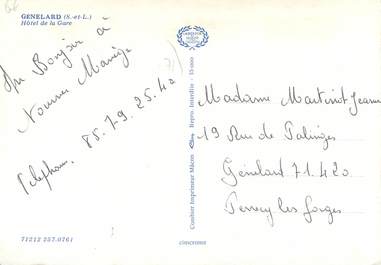 GÉNELARD (S.-et-L.)
Hôtel de la Gare
Un Bonjour à
Nounou Marièje
Telephone. 85.79.25.42
COMBIER IMPRIMEUR
MACON
Combier Imprimeur Mâcon
Repro. Interdite - 15.000
Madame Martinot Jeanne
19 Rue de Palinges
Génelard 71.420
Perrecy les forges
71212 257.0761
CIMCHROME